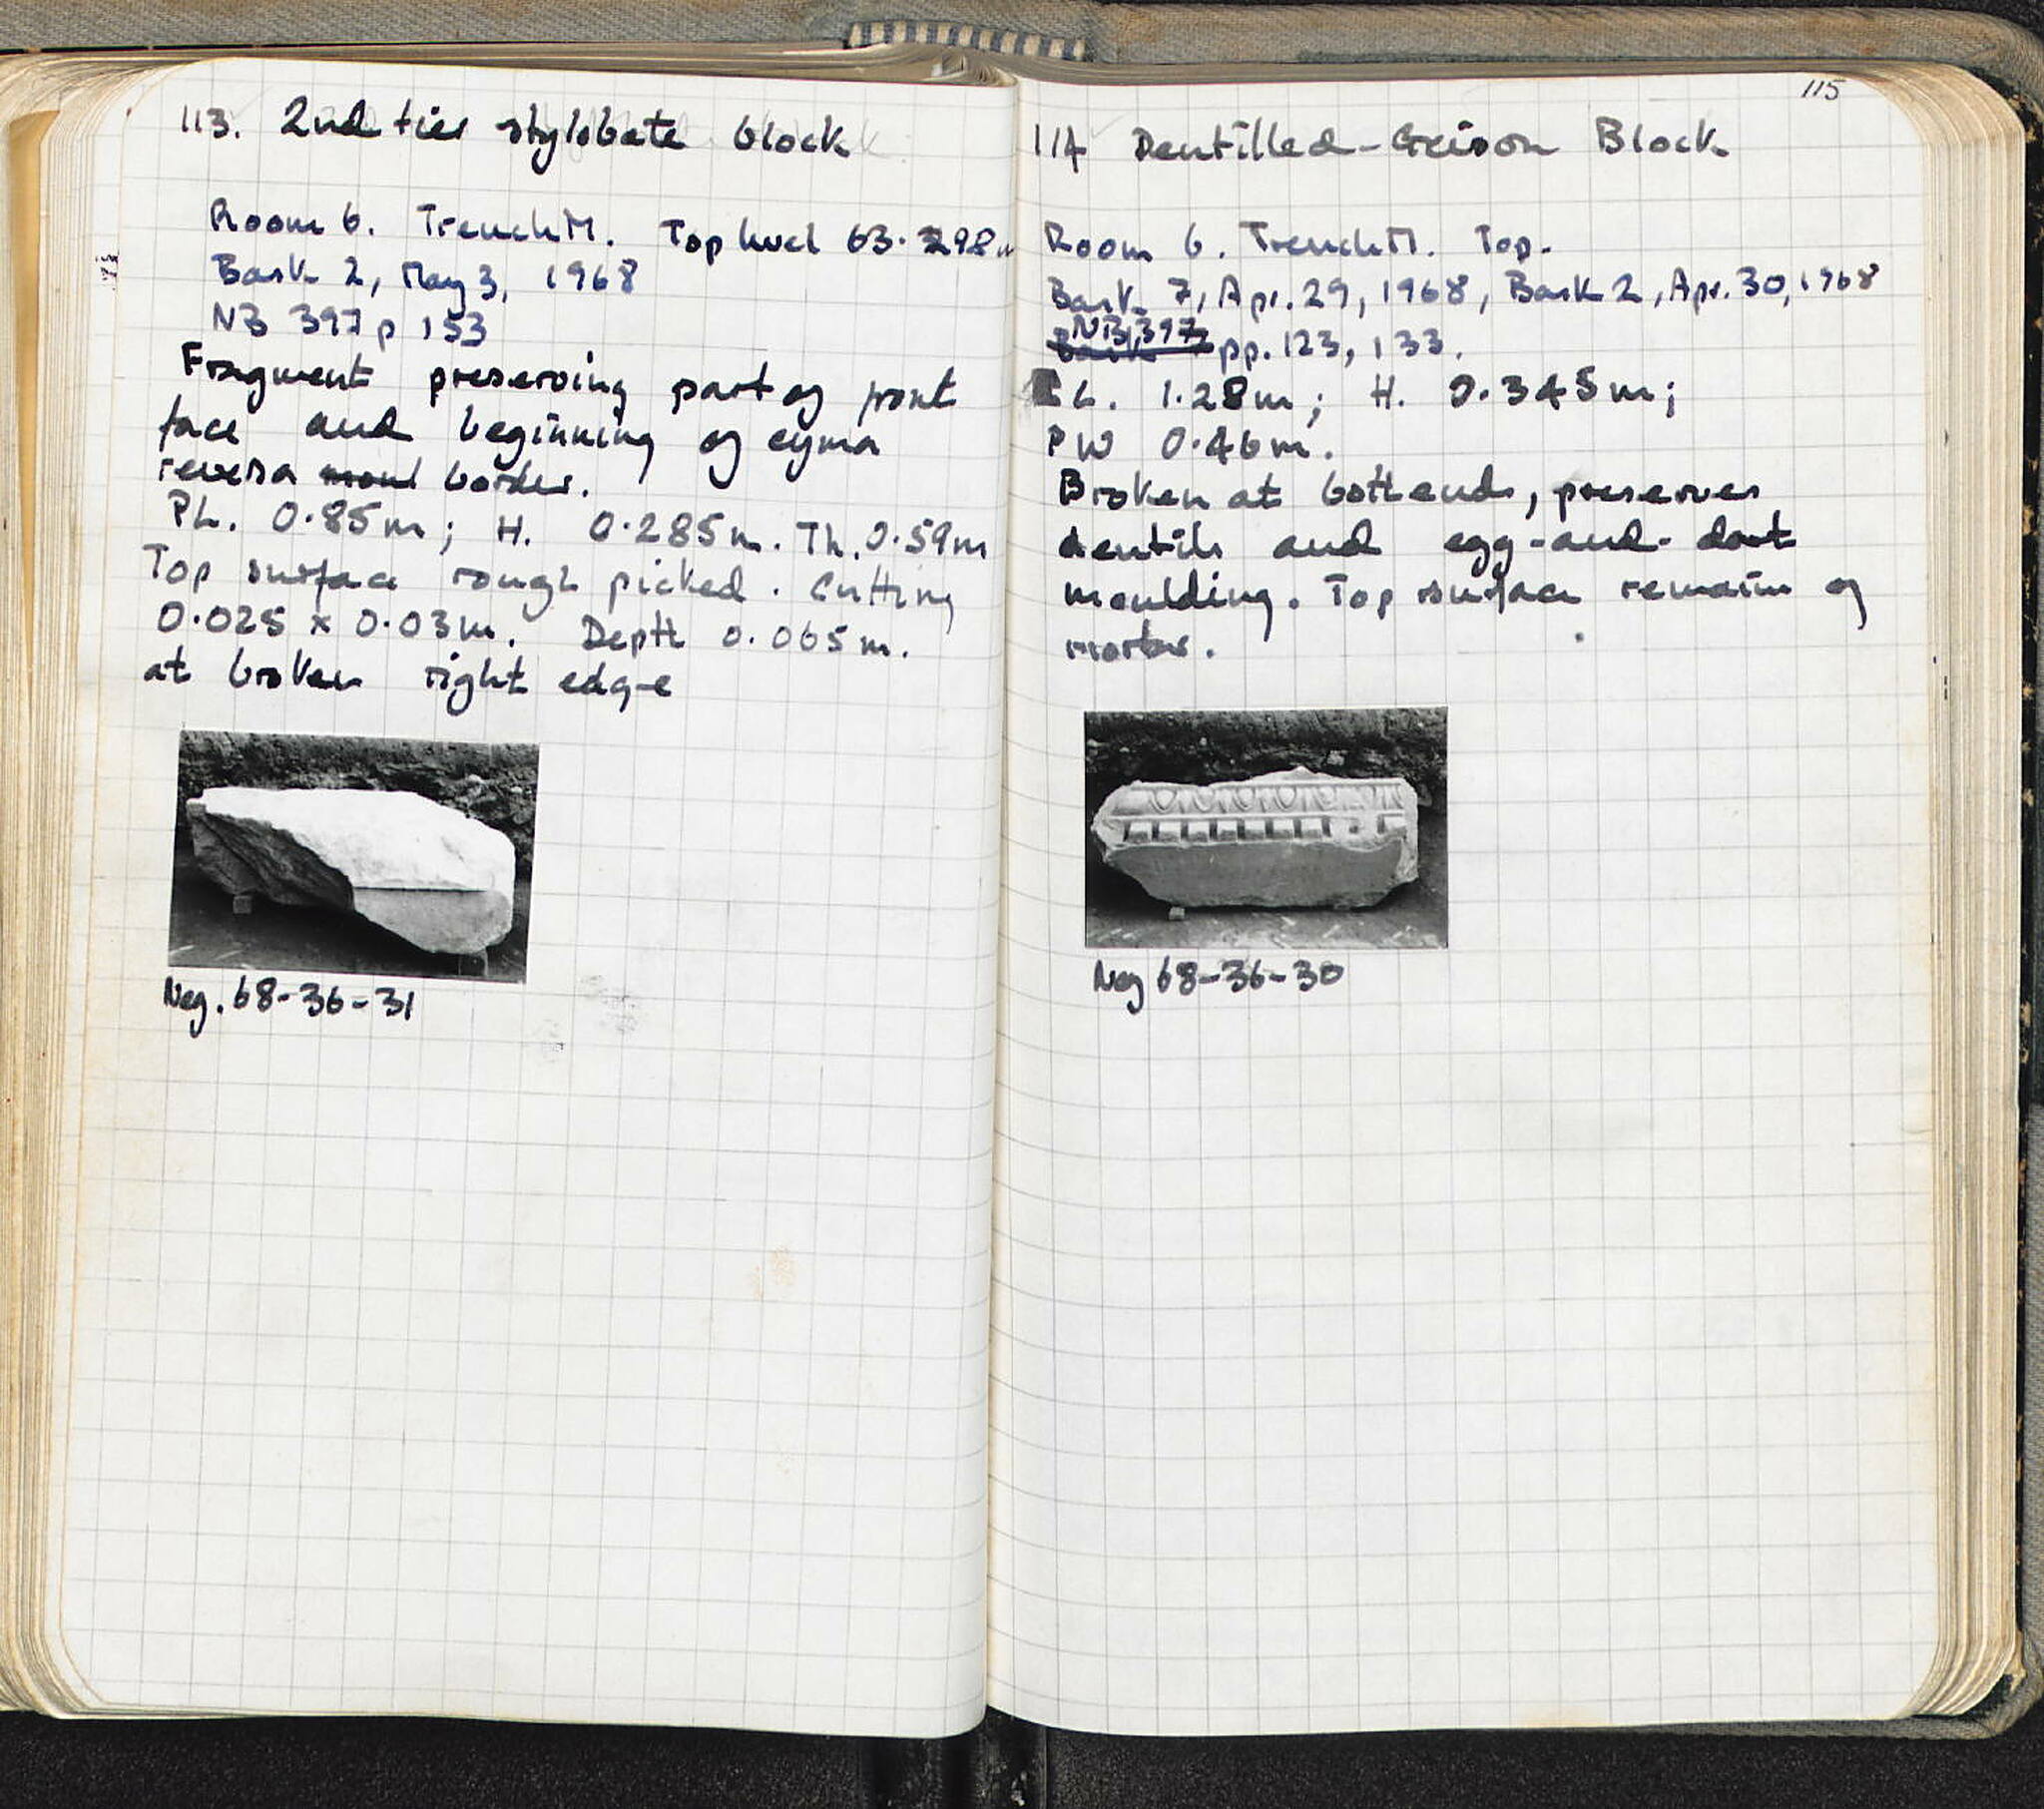 113. 2nd tier stylobate block
Room 6. Trench M. Top level 63.298m
Bask 2, May 3, 1968
NB 397 p 153
Fragment preserving part of front
face and beginning of cyma
reversa border.
PL. 0.85m; H. 0.285m. Th. 0.59m
Top surface rough picked. Cutting
0.025 x 0.03m. Depth 0.065m.
at broken right edge
Neg. 68-36-31
115
114 Dentilled-Geison Block
Room 6. Trench M. Top.
Bask 7, Apr. 29, 1968, Bask 2, Apr. 30, 1968
NB 397 pp. 123, 133.
L. 1.28m; H. 0.345m;
PW 0.46m.
Broken at both ends, preserves
dentils and egg-and-dart
moulding. Top surface remains of
mortar.
Neg 68-36-30